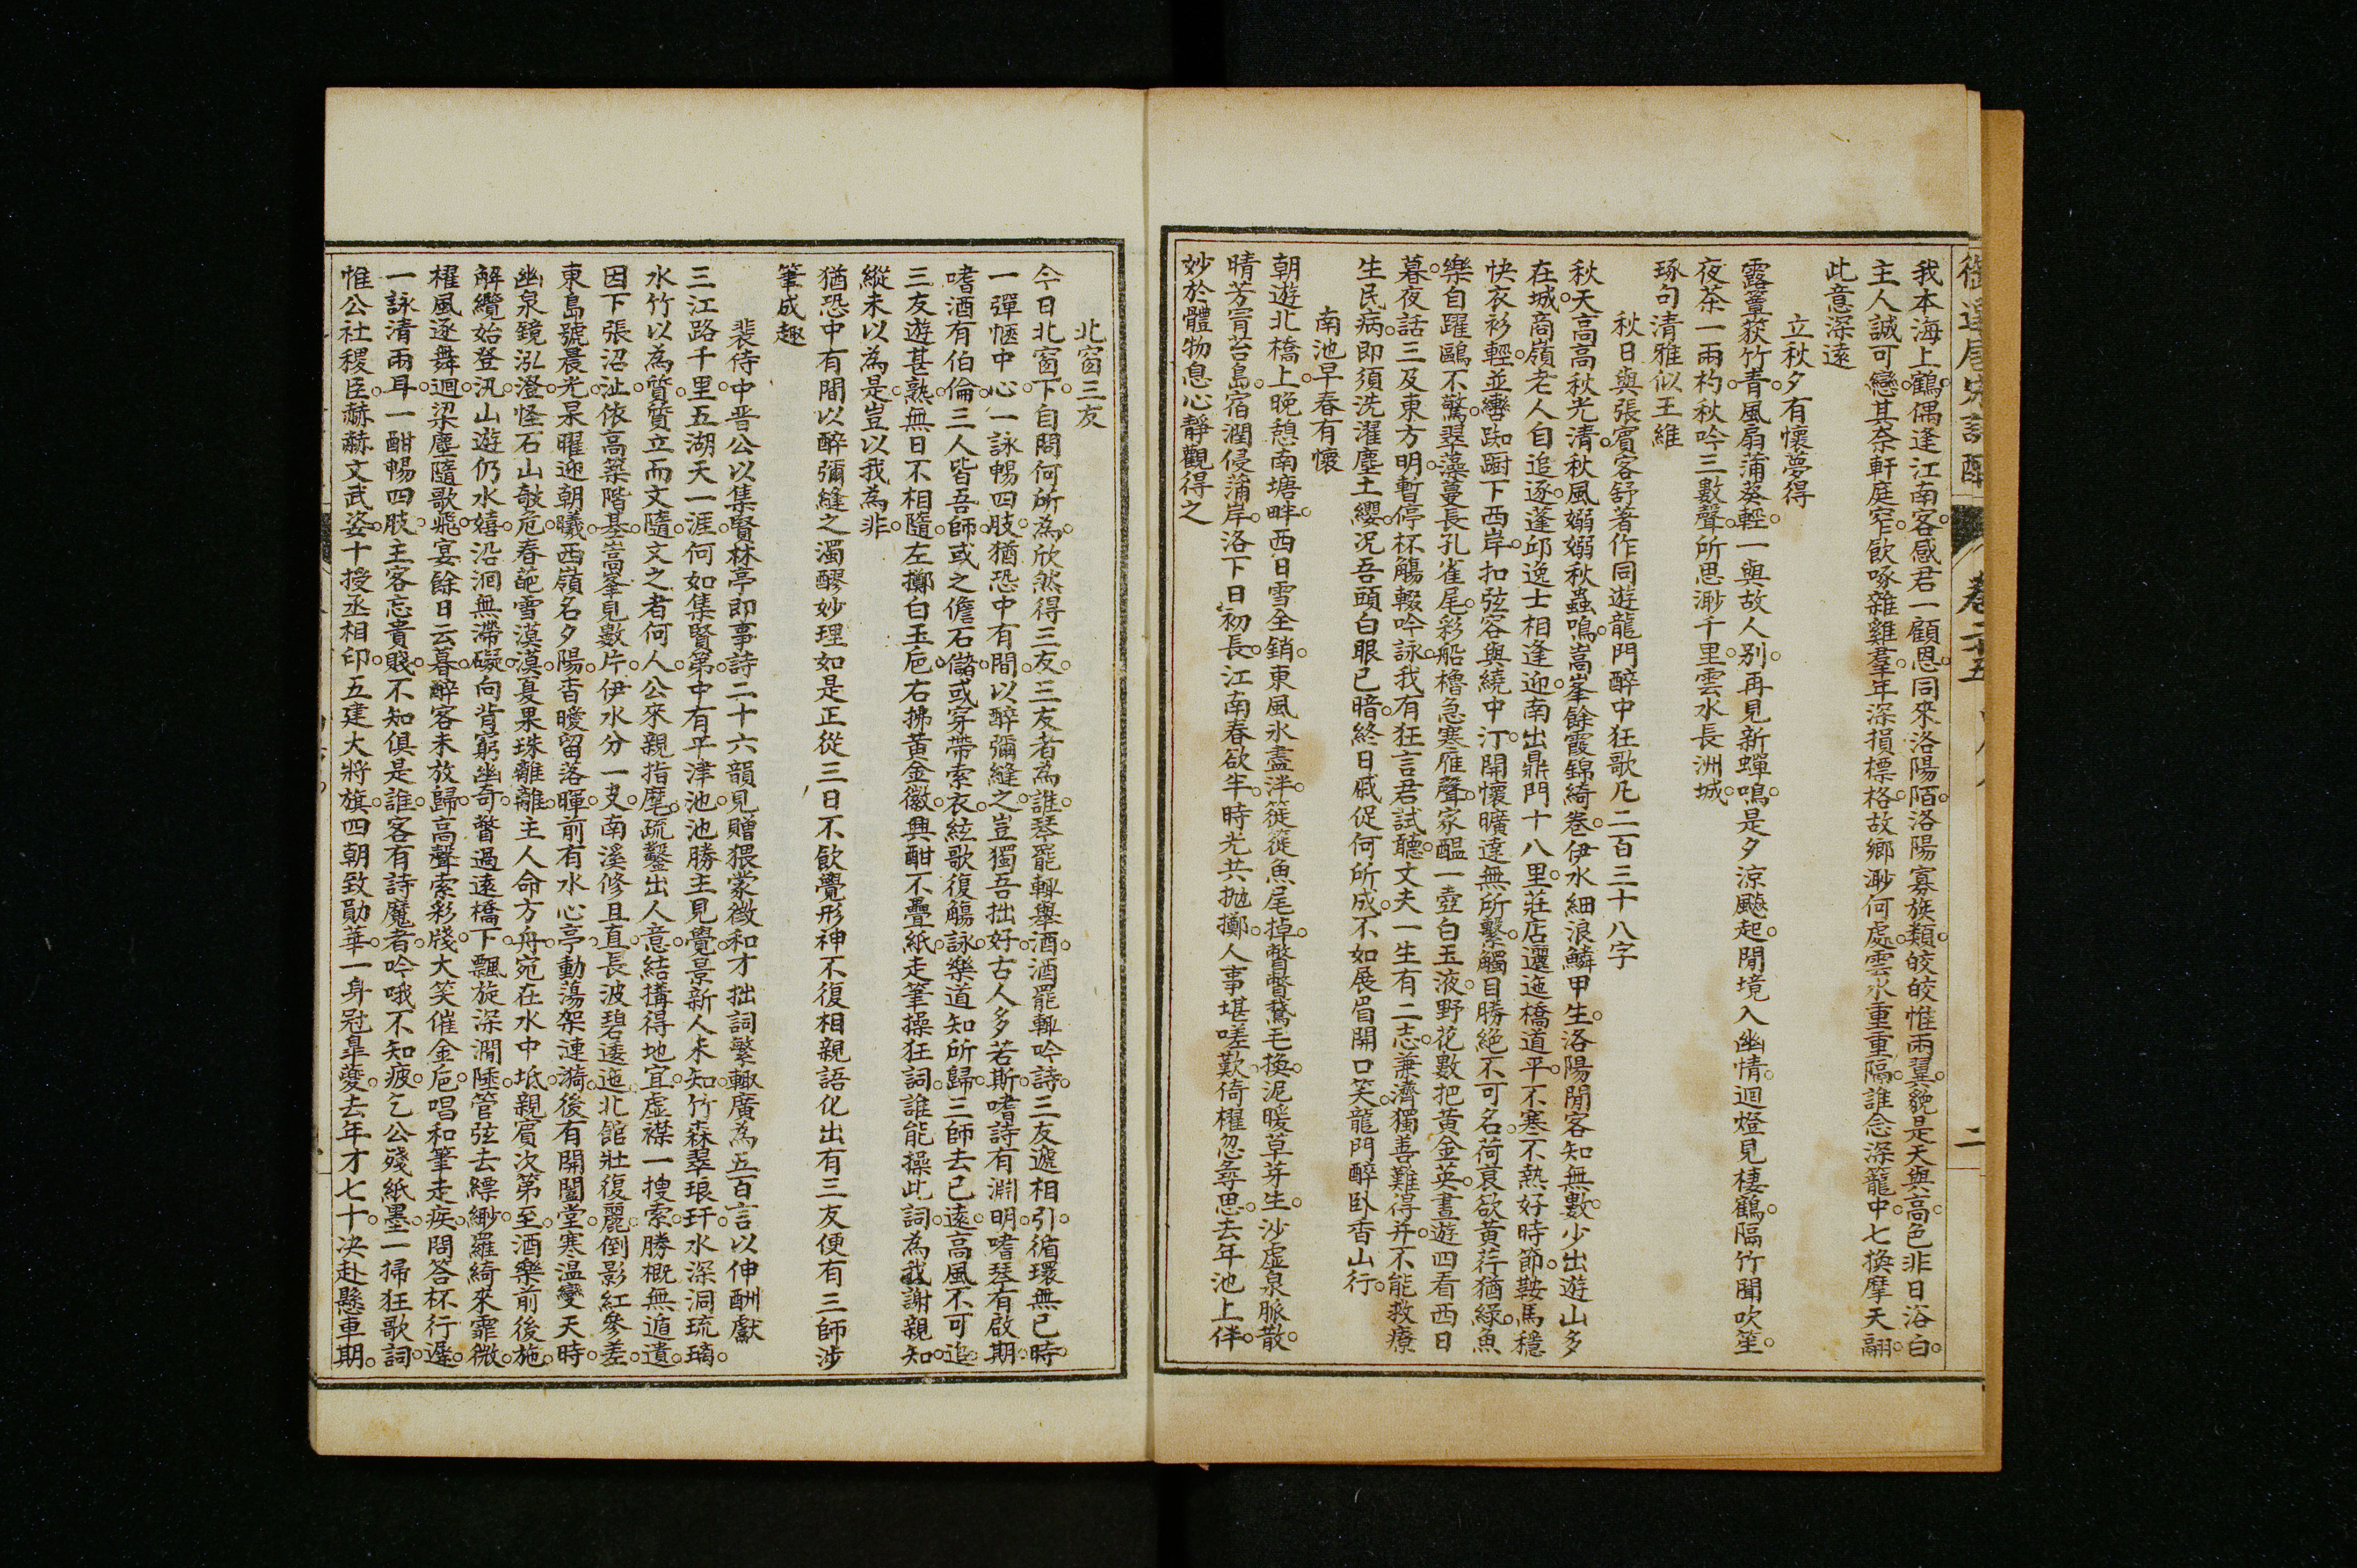 御選唐宋詩醇 卷二十五 二
我本海上鶴偶逢江南客感君一顧恩同來洛陽陌洛陽寡族類皎皎惟兩翼貌是天與高色非日浴白
主人誠可戀其奈軒庭窄飲啄雜雞羣年深損標格故鄉渺何處雲水重重隔誰念深籠中七換摩天翮
此意深遠
立秋夕有懷夢得
露簟荻竹青風扇蒲葵輕一與故人別再見新蟬鳴是夕涼飈起閒境入幽情迴燈見棲鶴隔竹聞吹笙
夜茶一兩杓秋吟三數聲所思渺千里雲水長洲城
琢句清雅似王維
秋日與張賓客舒著作同遊龍門醉中狂歌凡二百三十八字
秋天高高秋光清秋風嫋嫋秋蟲鳴嵩峯餘霞錦綺卷伊水細浪鱗甲生洛陽閒客知無數少出遊山多
在城商嶺老人自追逐蓬邱逸士相逢迎南出鼎門十八里莊店邐迤橋道平不寒不熱好時節鞍馬穩
快衣衫輕並轡踟躕下西岸扣弦容與繞中汀開懷曠達無所繫觸目勝絕不可名荷衰欲黃荇猶綠魚
樂自躍鷗不驚翠藻蔓長孔雀尾彩船櫓急寒雁聲家醖一壺白玉液野花數把黃金英晝遊四看西日
暮夜話三及東方明暫停杯觴輟吟詠我有狂言君試聽丈夫一生有二志兼濟獨善難得并不能救療
生民病即須洗濯塵土纓况吾頭白眼已暗終日戚促何所成不如展眉開口笑龍門醉臥香山行
南池早春有懷
朝遊北橋上晚憩南塘畔西日雪全銷東風水盡泮簁簁魚尾掉瞥瞥鵞毛換泥暖草芽生沙虛泉脈散
晴芳冒苔島宿潤侵蒲岸洛下日初長江南春欲半時光共拋擲人事堪嗟歎倚櫂忽尋思去年池上伴
妙於體物息心靜觀得之
北窗三友
今日北窗下自問何所為欣然得三友三友者為誰琴罷輒舉酒酒罷輒吟詩三友遞相引循環無已時
一彈愜中心一詠暢四肢猶恐中有間以醉彌縫之豈獨吾拙好古人多若斯嗜詩有淵明嗜琴有啟期
嗜酒有伯倫三人皆吾師或乏儋石儲或穿帶索衣絃歌復觴詠樂道知所歸三師去已遠高風不可追
三友遊甚熟無日不相隨左擲白玉巵右拂黃金徽興酣不疊紙走筆操狂詞誰能操此詞為我謝親知
縱未以為是豈以我為非
猶恐中有間以醉彌縫之濁醪妙理如是正從三日不飲覺形神不復相親語化出有三友便有三師涉
筆成趣
裴侍中晋公以集賢林亭即事詩二十六韻見贈猥蒙徵和才拙詞繁輒廣為五百言以伸酬獻
三江路千里五湖天一涯何如集賢第中有平津池池勝主見覺景新人未知竹森翠琅玕水深洞琉璃
水竹以為質質立而文隨文之者何人公來親指麾疏鑿出人意結構得地宜虛襟一搜索勝概無遁遺
因下張沼沚依高築階基嵩峯見數片伊水分一支南溪修且直長波碧逶迤北館壯復麗倒影紅參差
東島號晨光杲曜迎朝曦西嶺名夕陽杳曖留落暉前有水心亭動蕩架漣漪後有開闔堂寒温變天時
幽泉鏡泓澄怪石山敧危春葩雪漠漠夏果珠離離主人命方舟宛在水中坻親賓次第至酒樂前後施
解纜始登汎山遊仍水嬉沿洄無滯礙向背窮幽奇瞥過遠橋下飄旋深澗陲管弦去縹緲羅綺來霏微
櫂風逐舞迴梁塵隨歌飛宴餘日云暮醉客未放歸高聲索彩牋大笑催金巵唱和筆走疾問答杯行遲
一詠清兩耳一酣暢四肢主客忘貴賤不知俱是誰客有詩魔者吟哦不知疲乞公殘紙墨一掃狂歌詞
惟公社稷臣赫赫文武姿十授丞相印五建大將旗四朝致勛華一身冠皐夔去年才七十决赴懸車期